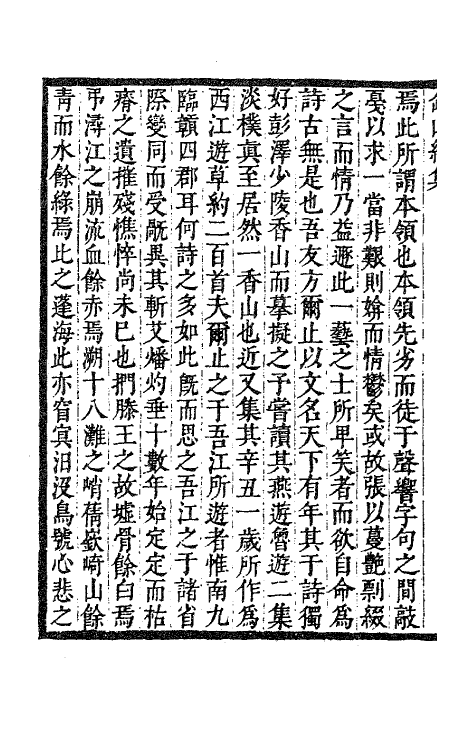 焉此所謂本領也本領先劣而徒于聲響字句之間敲
戛以求一當非艱則媕而情鬱矣或故張以蔓艷剽綴
之言而情乃益遯此一藝之士所甲笑者而欲自命爲
詩古無是也吾友方爾止以文名天下有年其于詩獨
好彭澤少陵香山而摹擬之予嘗讀其燕遊魯遊二集
淡樸真至居然一香山也近又集其辛丑一歲所作爲
西江遊草約二百首夫爾止之于吾江所遊者惟南九
臨贛四郡耳何詩之多如此旣而思之吾江之于諸省
際變同而受戡異其斬艾燔灼垂十數年始定定而枯
瘠之遺摧殘憔悴尚未巳也捫滕王之故墟骨餘白焉
弔潯江之崩流血餘赤焉朔十八灘之峭蒨嶔崎山餘
青而水餘綠焉比之蓬海此亦窅㝠汨沒鳥號心悲之